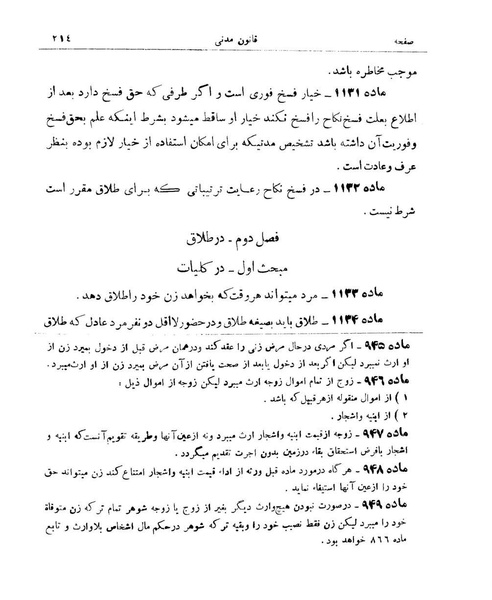 صفحه قانون مدنی ۲۱٤
موجب مخاطره باشد.
ماده ۱۱۳۱ ـ خیار فسخ فوری است و اگر طرفی که حق فسخ دارد بعد از
اطلاع بعلت فسخ نکاح را فسخ نکند خیار او ساقط میشود بشرط اینکه علم بحق فسخ
و فوریت آن داشته باشد تشخیص مدتیکه برای امکان استفاده از خیار لازم بوده بنظر
عرف و عادت است .
ماده ۱۱۳۲ ـ در فسخ نکاح رعایت ترتیباتی که برای طلاق مقرر است
شرط نیست .
فصل دوم ـ در طلاق
مبحث اول ـ در کلیات
ماده ۱۱۳۳ ـ مرد میتواند هر وقت که بخواهد زن خود را طلاق دهد .
ماده ۱۱۳۴ ـ طلاق باید بصیغه طلاق و در حضور لااقل دو نفر مرد عادل که طلاق
ماده ۹۴۵ ـ اگر مردی در حال مرض زنی را عقد کند و در همان مرض قبل از دخول بمیرد زن از
او ارث نمیبرد لیکن اگر بعد از دخول یا بعد از صحت یافتن از آن مرض بمیرد زن از او ارث میبرد .
ماده ۹۴۶ ـ زوج از تمام اموال زوجه ارث میبرد لیکن زوجه از اموال ذیل :
۱ ) از اموال منقوله از هر قبیل که باشد .
۲ ) از ابنیه و اشجار .
ماده ۹۴۷ ـ زوجه از قیمت ابنیه و اشجار ارث میبرد و نه از عین آنها و طریقه تقویم آنست که ابنیه و
اشجار با فرض استحقاق بقاء در زمین بدون اجرت تقویم میگردد .
ماده ۹۴۸ ـ هر گاه در مورد ماده قبل ورثه از اداء قیمت ابنیه و اشجار امتناع کند زن میتواند حق
خود را از عین آنها استیفاء نماید .
ماده ۹۴۹ ـ در صورت نبودن هیچ وارث دیگر بغیر از زوج یا زوجه شوهر تمام ترکه زن متوفاة
خود را میبرد لیکن زن فقط نصیب خود را و بقیه ترکه شوهر در حکم مال اشخاص بلاوارث و تابع
ماده ۸٦٦ خواهد بود .